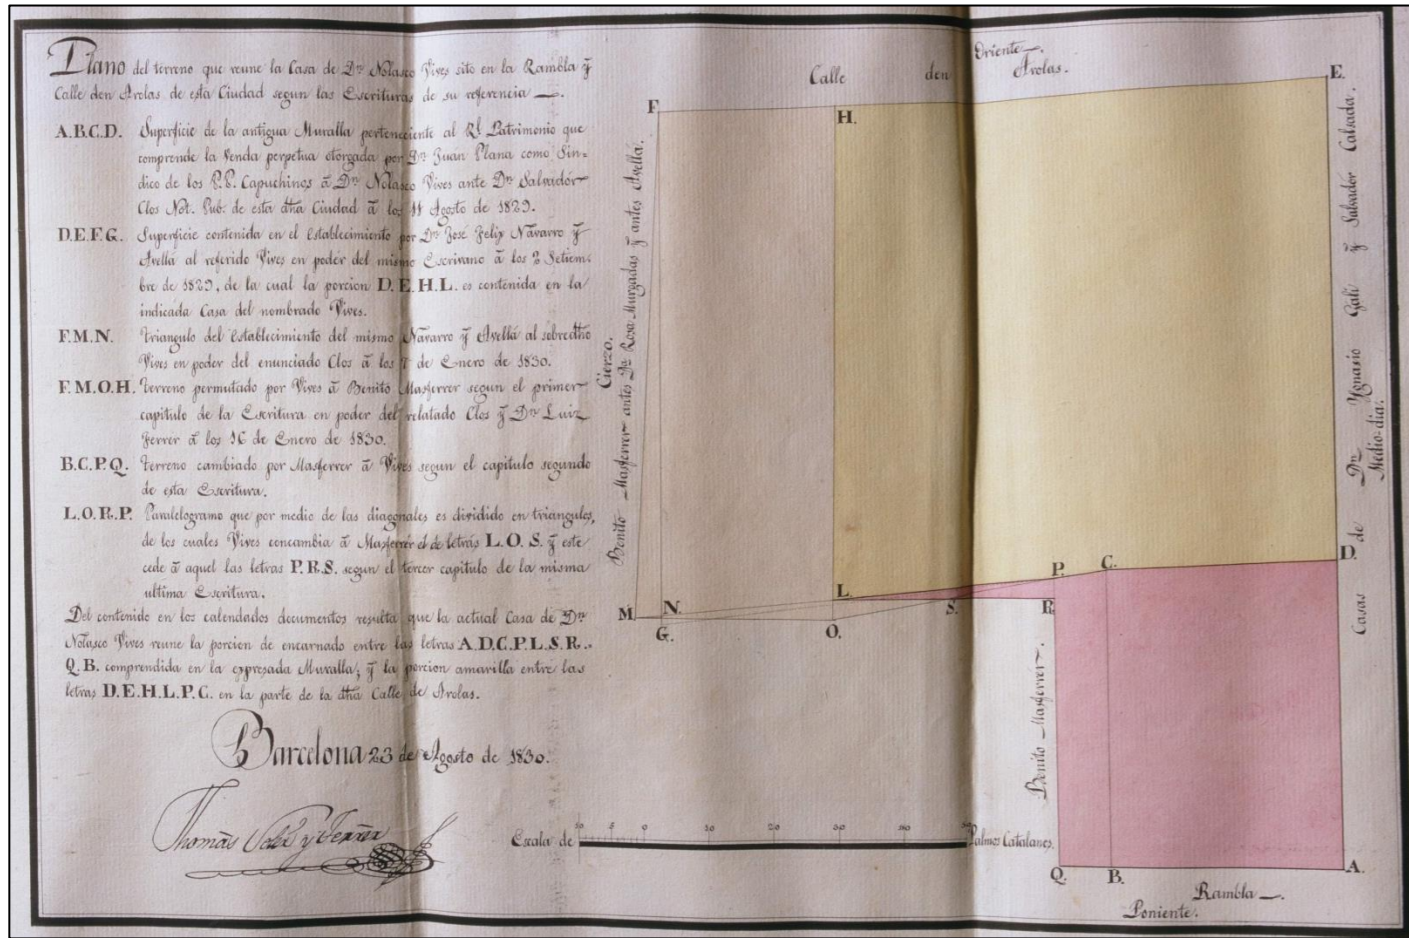 Plano del terreno que reune la Casa de Dn. Nolasco Vives sito en la Rambla ÿ
Calle den Arolas de esta Ciudad segun las Escrituras de su referencia —.
A.B.C.D. Superficie de la antigua Muralla perteneciente al Rl. Patrimonio que
comprende la Venda perpetua otorgada por Dn. Juan Plana como Sin=
dico de los P.P. Capuchinos â Dn. Nolasco Vives ante Dn. Salvador
Clos Not. Pub. de esta dha Ciudad â los 11 Agosto de 1829.
D.E.F.G. Superficie contenida en el Establecimiento por Dn. José Felix Navarro ÿ
Avellá al referido Vives en poder del mismo Escrivano â los 2 Setiem=
bre de 1829, de la cual la porcion D.E.H.L. es contenida en la
indicada Casa del nombrado Vives.
F.M.N. Triangulo del Establecimiento del mismo Navarro ÿ Avellá al sobredho
Vives en poder del enunciado Clos â los 7 de Enero de 1830.
F.M.O.H. Terreno permutado por Vives â Benito Masferrer segun el primer
capitulo de la Escritura en poder del relatado Clos ÿ Dn. Luiz
Ferrer â los 16 de Enero de 1830.
B.C.P.Q. Terreno cambiado por Masferrer â Vives segun el capitulo segundo
de esta Escritura.
L.O.R.P. Paralelogramo que por medio de las diagonales es dividido en triangules,
de los cuales Vives concambia â Masferrer el de letras L.O.S. ÿ este
cede â aquel las letras P.R.S. segun el tercer capitulo de la misma
ultima Escritura.
Del contenido en los calendados documentos resulta que la actual Casa de Dn.
Nolasco Vives reune la porcion de encarnado entre las letras A.D.C.P.L.S.R..
Q.B. comprendida en la expresada Muralla; ÿ la porcion amarilla entre las
letras D.E.H.L.P.C. en la parte de la dha Calle de Arolas.
Barcelona 23 de Agosto de 1830.
Thomás Ferrer
Oriente —.
Calle den Arolas.
F.
H.
E.
Cierzo.
Benito Masferrer antes Da. Rosa Murgadas ÿ antes Avellá.
Casas de Dn. Ygnasio Galí ÿ Salvador Calsada.
Medio-dia.
M
N.
G.
L
O.
S.
P.
R.
C.
D.
Benito Masferrer.
Q.
B.
A.
Rambla —.
Poniente.
Escala de 10 5 0 10 20 30 40 50 Palmos Catalanes.